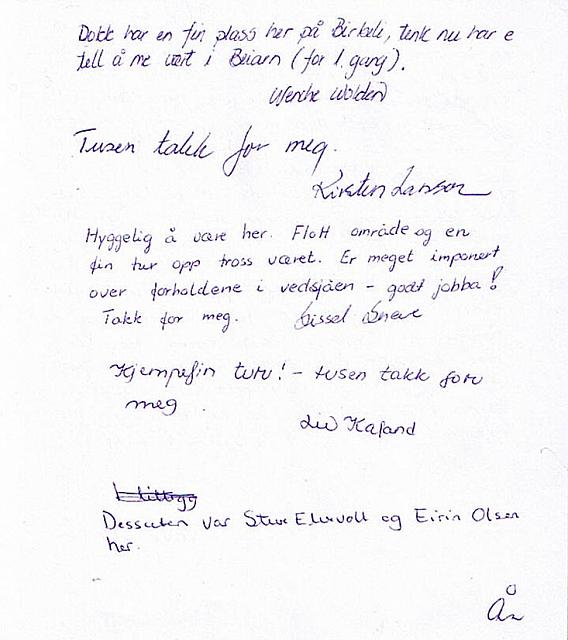 Dokk har en fin plass her på Birkeli, tenk nu har e
tell å me vært i Beiarn (for 1. gang).
Wenche Wolden
Tusen takk for meg.
Kirsten Larsen
Hyggelig å være her. Flott område og en
fin tur opp tross været. Er meget imponert
over forholdene i vedsjåen - godt jobba!
Takk for meg. Sissel
Kjempefin tur! - tusen takk for
meg
Liv Kafand
Dessuten var og Eirin Olsen
her.